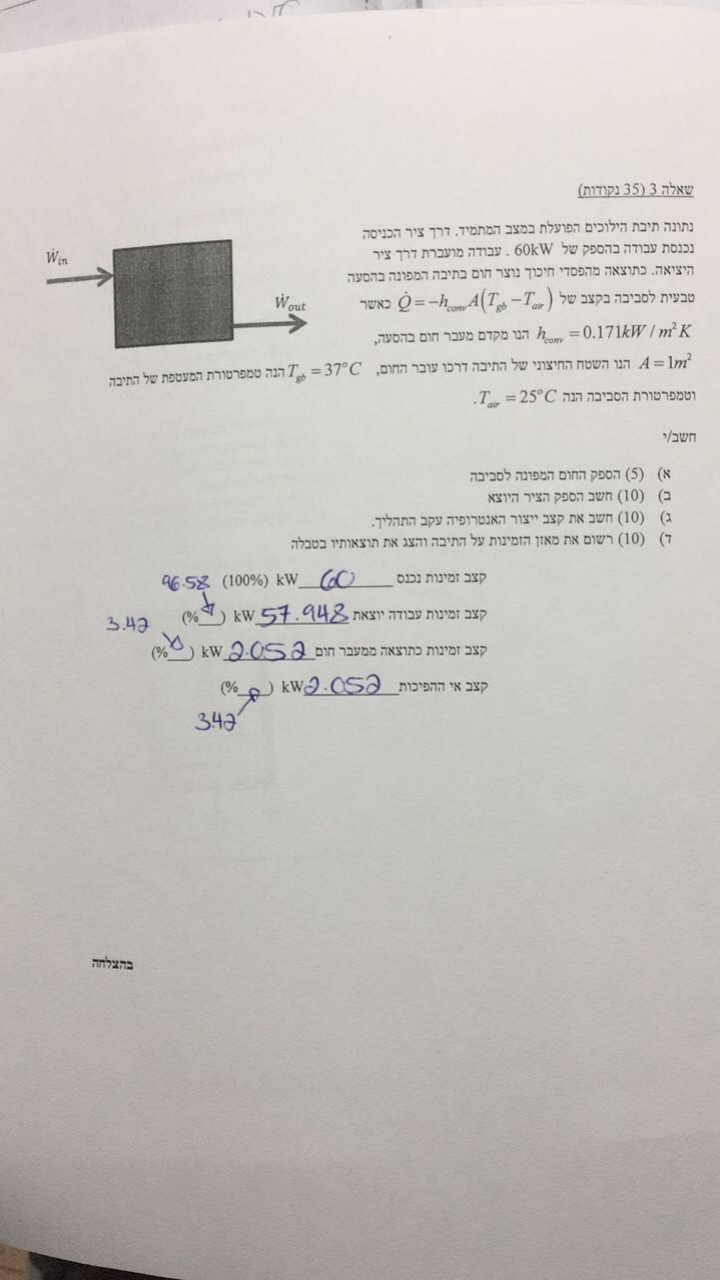 שאלה 3 (35 נקודות)
נתונה תיבת הילוכים הפועלת במצב המתמיד. דרך ציר הכניסה
נכנסת עבודה בהספק של 60kW . עבודה מועברת דרך ציר
היציאה. כתוצאה מהפסדי חיכוך נוצר חום בתיבה המפונה בהסעה
טבעית לסביבה בקצב של Q̇ = −h_conv A(T_gb − T_air) כאשר
h_conv = 0.171kW / m²K הנו מקדם מעבר חום בהסעה,
A = 1m² הנו השטח החיצוני של התיבה דרכו עובר החום, T_gb = 37°C הנה טמפרטורת המעטפת של התיבה
וטמפרטורת הסביבה הנה T_air = 25°C.
Ẇin
Ẇout
חשב/י
א) (5) הספק החום המפונה לסביבה
ב) (10) חשב הספק הציר היוצא
ג) (10) חשב את קצב ייצור האנטרופיה עקב התהליך.
ד) (10) רשום את מאזן הזמינות על התיבה והצג את תוצאותיו בטבלה
קצב זמינות נכנס 60 kW (100%)
96.58
קצב זמינות עבודה יוצאת 57.948 kW (%__)
3.42
קצב זמינות כתוצאה ממעבר חום 2.052 kW (%__)
קצב אי ההפיכות 2.052 kW (%__)
3.42
בהצלחה